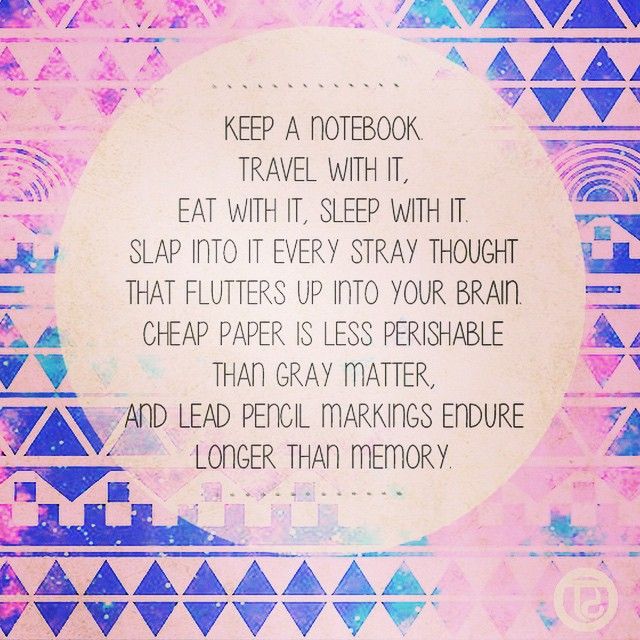 KEEP A NOTEBOOK.
TRAVEL WITH IT,
EAT WITH IT, SLEEP WITH IT.
SLAP INTO IT EVERY STRAY THOUGHT
THAT FLUTTERS UP INTO YOUR BRAIN.
CHEAP PAPER IS LESS PERISHABLE
THAN GRAY MATTER,
AND LEAD PENCIL MARKINGS ENDURE
LONGER THAN MEMORY.